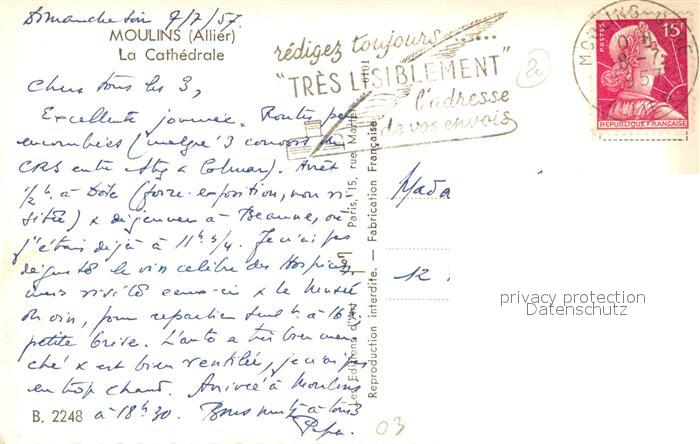 Dimanche soir 7/7/57.
MOULINS (Allier)
La Cathédrale
Chers tous les 3,
Excellente journée. Routes peu
encombrées (malgré 3 convois de
CRS entre Stbg et Colmar). Arrêt
1/2 h. à Dôle (foire-exposition, non vi-
sitée) x déjeuner à Beaune, où
j'étais déjà à 11h 3/4. Je n'ai pas
dégusté le vin célèbre des Hospices
mais visité ceux-ci x le Musée
du vin, pour repartir seul. à 16h
petite brise. L'auto a très bien mar-
ché x est bien ventilée, je n'ai pas
eu trop chaud. Arrivée à Moulins
à 18h30. Bons à tous 3
Papa.
B. 2248
rédigez toujours......
"TRÈS LISIBLEMENT"
l'adresse
de vos envois
Les Editions d'Art Paris, 15, rue Martel
Reproduction interdite. — Fabrication Française
MOULINS
8-7
1957
ALLIER
POSTES
15F
REPUBLIQUE FRANÇAISE
Mada
12
privacy protection
Datenschutz
03